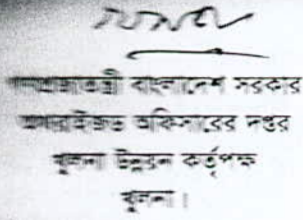 গণপ্রজাতন্ত্রী বাংলাদেশ সরকার
অথরাইজড অফিসারের দপ্তর
খুলনা উন্নয়ন কর্তৃপক্ষ
খুলনা।